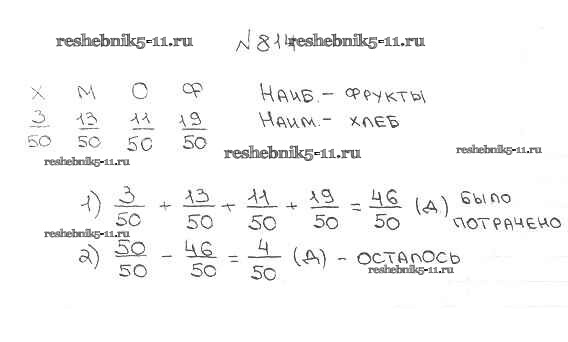 reshebnik5-11.ru №814 reshebnik5-11.ru
Х М О Ф Наиб. - фрукты
3/50 13/50 11/50 19/50 Наим. - хлеб
reshebnik5-11.ru reshebnik5-11.ru reshebnik5-11.ru
1) 3/50 + 13/50 + 11/50 + 19/50 = 46/50 (д) было
потрачено
reshebnik5-11.ru
2) 50/50 - 46/50 = 4/50 (д) - осталось
reshebnik5-11.ru